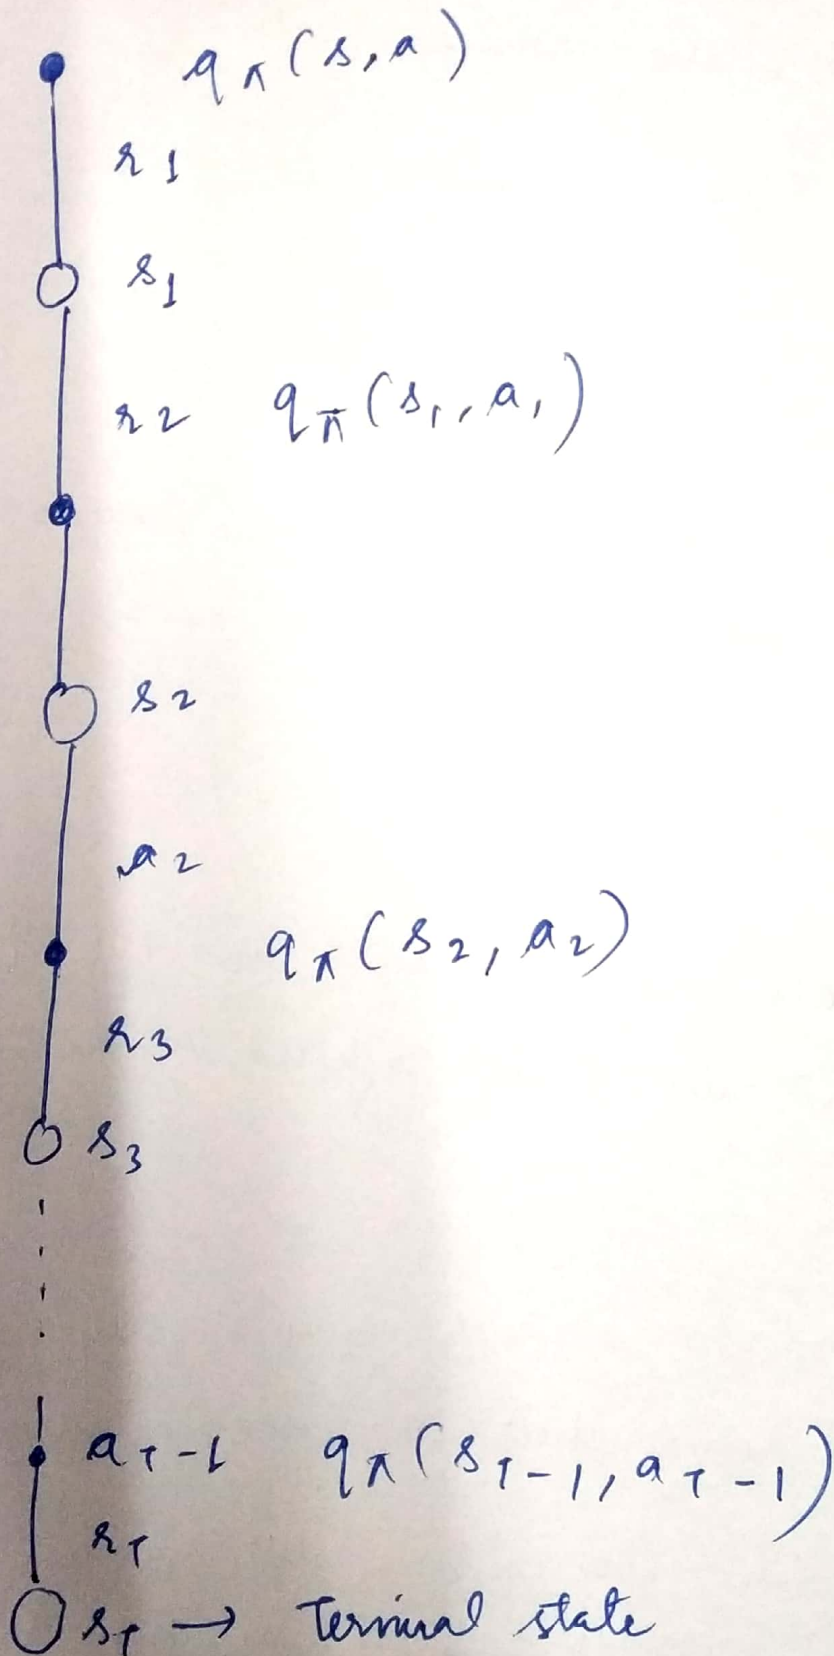 qπ(s,a)
r1
s1
r2 qπ(s1,a1)
s2
a2
qπ(s2,a2)
r3
s3
aT-1 qπ(sT-1,aT-1)
rT
sT → Terminal state